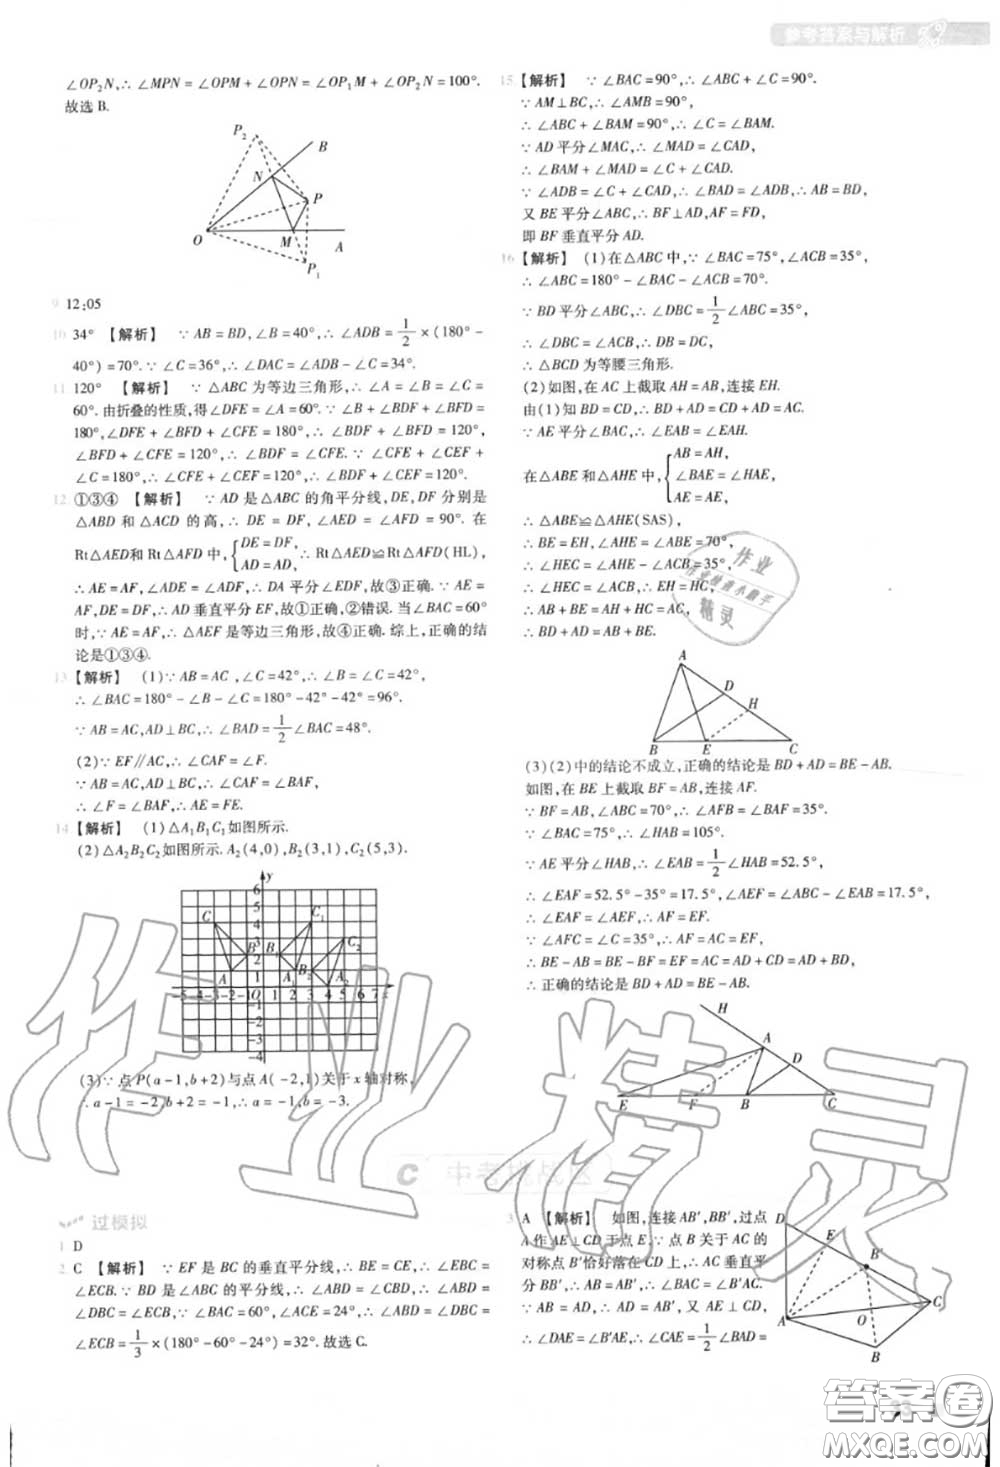 参考答案与解析
∠OP₂N,∴ ∠MPN = ∠OPM + ∠OPN = ∠OP₁M + ∠OP₂N = 100°.
故选 B.
P₂
B
N
P
O
M
A
P₁
9 12:05
10 34° 【解析】 ∵ AB = BD,∠B = 40°,∴ ∠ADB = 1/2 ×(180° -
40°) = 70°.∵ ∠C = 36°,∴ ∠DAC = ∠ADB - ∠C = 34°.
11 120° 【解析】 ∵ △ABC 为等边三角形,∴ ∠A = ∠B = ∠C =
60°. 由折叠的性质,得∠DFE = ∠A = 60°.∵ ∠B + ∠BDF + ∠BFD =
180°,∠DFE + ∠BFD + ∠CFE = 180°,∴ ∠BDF + ∠BFD = 120°,
∠BFD + ∠CFE = 120°,∴ ∠BDF = ∠CFE.∵ ∠CFE + ∠CEF +
∠C = 180°,∴ ∠CFE + ∠CEF = 120°,∴ ∠BDF + ∠CEF = 120°.
12 ①③④ 【解析】 ∵ AD 是△ABC 的角平分线,DE,DF 分别是
△ABD 和△ACD 的高,∴ DE = DF,∠AED = ∠AFD = 90°. 在
Rt△AED和 Rt△AFD 中,{DE = DF, AD = AD,∴ Rt△AED≌Rt△AFD(HL),
∴ AE = AF,∠ADE = ∠ADF,∴ DA 平分∠EDF,故③正确.∵ AE =
AF,DE = DF,∴ AD 垂直平分 EF,故①正确,②错误. 当∠BAC = 60°
时,∵ AE = AF,∴ △AEF 是等边三角形,故④正确. 综上,正确的结
论是①③④.
13 【解析】 (1)∵ AB = AC ,∠C = 42°,∴ ∠B = ∠C = 42°,
∴ ∠BAC = 180° - ∠B - ∠C = 180° - 42° - 42° = 96°.
∵ AB = AC,AD⊥BC,∴ ∠BAD = 1/2 ∠BAC = 48°.
(2)∵ EF∥AC,∴ ∠CAF = ∠F.
∵ AB = AC,AD⊥BC,∴ ∠CAF = ∠BAF,
∴ ∠F = ∠BAF,∴ AE = FE.
14 【解析】 (1)△A₁B₁C₁如图所示.
(2)△A₂B₂C₂如图所示. A₂(4,0),B₂(3,1),C₂(5,3).
y
6
5
4
3
2
1
C
C₁
C₂
B
B₁
A
B₂
A₂
-5 -4 -3 -2 -1 O 1 2 3 4 5 6 7 x
-1
-2
-3
-4
(3)∵ 点 P(a - 1,b + 2)与点 A( - 2,1)关于 x 轴对称,
∴ a - 1 = - 2,b + 2 = - 1,∴ a = - 1,b = - 3.
C 中考挑战区
过模拟
1 D
2 C 【解析】 ∵ EF 是 BC 的垂直平分线,∴ BE = CE,∴ ∠EBC =
∠ECB.∵ BD 是∠ABC 的平分线,∴ ∠ABD = ∠DBC,∴ ∠ABD =
∠DBC = ∠ECB.∵ ∠BAC = 60°,∠ACE = 24°,∴ ∠ABD = ∠DBC =
∠ECB = 1/3 ×(180° - 60° - 24°) = 32°. 故选 C.
15 【解析】 ∵ ∠BAC = 90°,∴ ∠ABC + ∠C = 90°.
∵ AM⊥BC,∴ ∠AMB = 90°,
∴ ∠ABC + ∠BAM = 90°,∴ ∠C = ∠BAM.
∵ AD 平分∠MAC,∴ ∠MAD = ∠CAD,
∴ ∠BAM + ∠MAD = ∠C + ∠CAD.
∵ ∠ADB = ∠C + ∠CAD,∴ ∠BAD = ∠ADB,∴ AB = BD,
又 BE 平分∠ABC,∴ BF⊥AD,AF = FD,
即 BF 垂直平分 AD.
16 【解析】 (1)在△ABC 中,∵ ∠BAC = 75°,∠ACB = 35°,
∴ ∠ABC = 180° - ∠BAC - ∠ACB = 70°.
∵ BD 平分∠ABC,∴ ∠DBC = 1/2 ∠ABC = 35°,
∴ ∠DBC = ∠ACB,∴ DB = DC,
∴ △BCD 为等腰三角形.
(2)如图,在 AC 上截取 AH = AB,连接 EH.
由(1)知 BD = CD,∴ BD + AD = CD + AD = AC.
∵ AE 平分∠BAC,∴ ∠EAB = ∠EAH.
在△ABE 和△AHE 中,{AB = AH, ∠BAE = ∠HAE, AE = AE,
∴ △ABE≌△AHE(SAS),
∴ BE = EH,∠AHE = ∠ABE = 70°,
∴ ∠HEC = ∠AHE - ∠ACB = 35°,
∴ ∠HEC = ∠ACB,∴ EH = HC,
∴ AB + BE = AH + HC = AC,
∴ BD + AD = AB + BE.
A
D
H
B
E
C
(3)(2)中的结论不成立,正确的结论是 BD + AD = BE - AB.
如图,在 BE 上截取 BF = AB,连接 AF.
∵ BF = AB,∠ABC = 70°,∴ ∠AFB = ∠BAF = 35°.
∵ ∠BAC = 75°,∴ ∠HAB = 105°.
∵ AE 平分∠HAB,∴ ∠EAB = 1/2 ∠HAB = 52.5°,
∴ ∠EAF = 52.5° - 35° = 17.5°,∠AEF = ∠ABC - ∠EAB = 17.5°,
∴ ∠EAF = ∠AEF,∴ AF = EF.
∵ ∠AFC = ∠C = 35°,∴ AF = AC = EF,
∴ BE - AB = BE - BF = EF = AC = AD + CD = AD + BD.
∴ 正确的结论是 BD + AD = BE - AB.
H
A
D
E
F
B
C
3 A 【解析】 如图,连接 AB′,BB′,过点
A 作 AE⊥CD 于点 E,∵ 点 B 关于 AC 的
对称点 B′恰好落在 CD 上,∴ AC 垂直平
分 BB′,∴ AB = AB′,∴ ∠BAC = ∠B′AC.
∵ AB = AD,∴ AD = AB′,又 AE⊥CD,
∴ ∠DAE = ∠B′AE,∴ ∠CAE = 1/2 ∠BAD =
D
E
B′
C
A
O
B
作业
作业检查小助手
精灵
作业精灵
答案圈
MXQE.COM